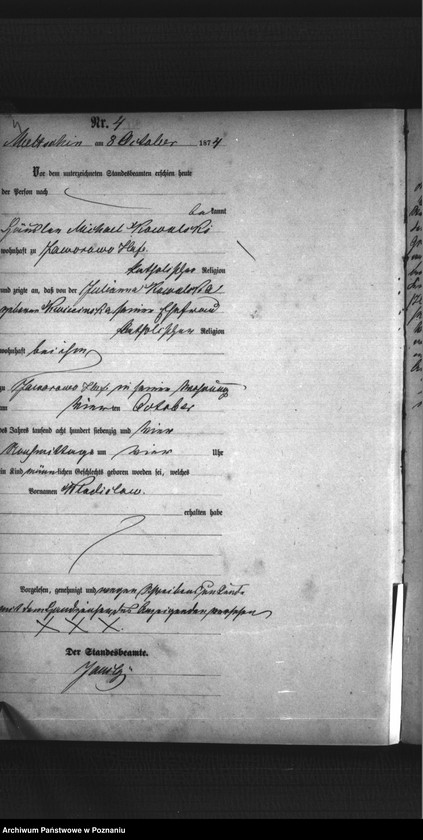 Nr. 4
am 8 October 1874
Vor dem unterzeichneten Standesbeamten erschien heute
der Person nach
be kannt
Michael Kowalski
wohnhaft zu Jaworowo
katholischer Religion
und zeigte an, daß von der Julianna Kowalska
geborenen seiner Ehefrau
katholischer Religion
wohnhaft bei ihm
zu Jaworowo in seiner Wohnung
am vier ten October
des Jahres tausend acht hundert siebenzig und vier
Nachmittags um vier Uhr
in Kind männlichen Geschlechts geboren worden sei, welches
Vornamen Wladislaw.
erhalten habe
Vorgelesen, genehmigt und wegen Schreibens Unkunde
mit dem Handzeichen des Anzeigenden versehen
X X X.
Der Standesbeamte.
Archiwum Państwowe w Poznaniu